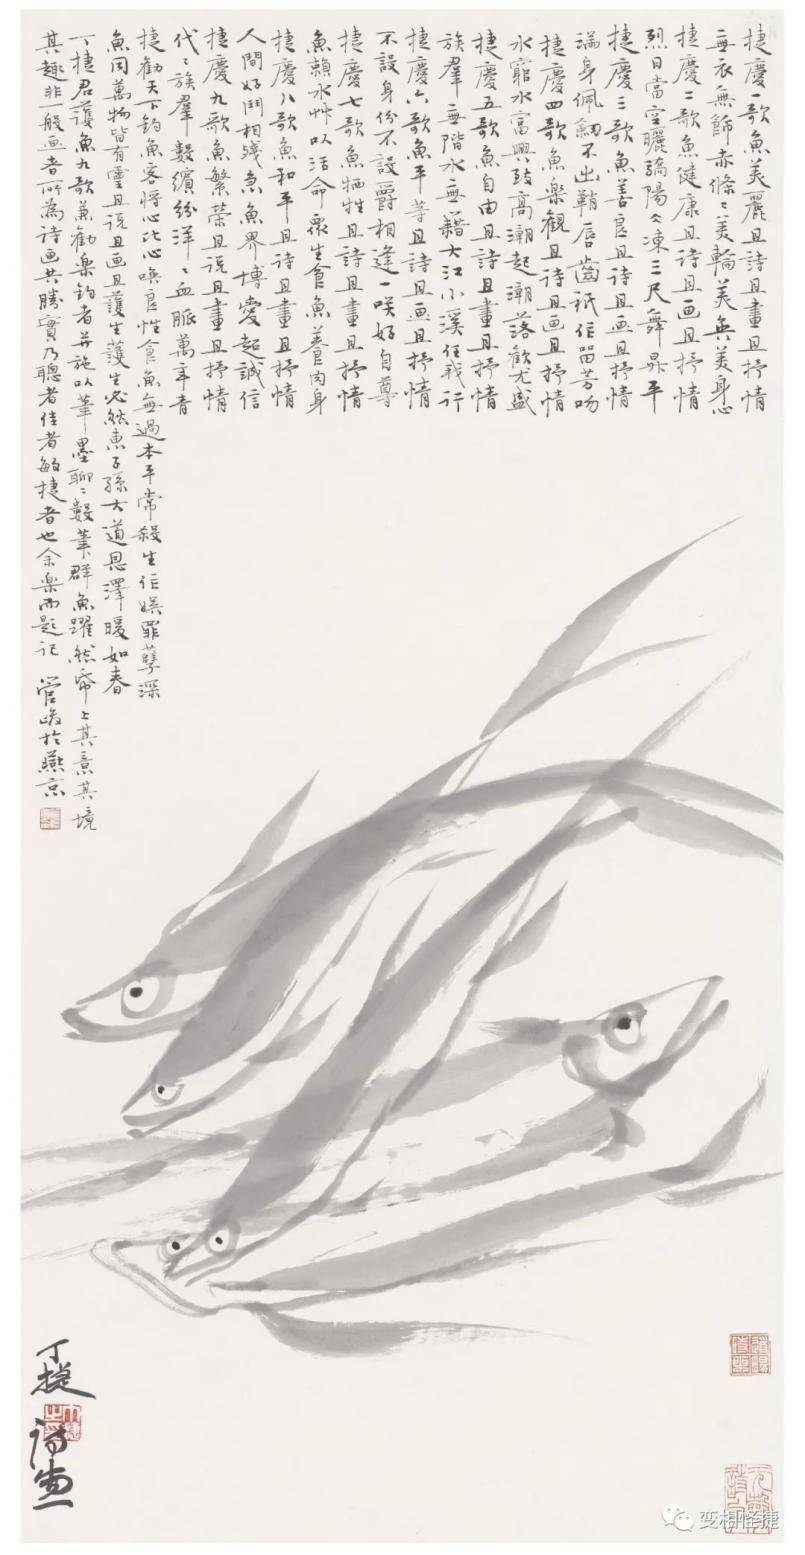 捷慶一歌魚美麗且詩且畫且抒情
無衣無飾赤條〻美輪美奐美身心
捷慶二歌魚健康且诗且画且抒情
烈日當空曬驕陽天凍三尺舞昇平
捷慶三歌魚善良且诗且画且抒情
滿身佩劍不出鞘唇齒祇作留芳吻
捷慶四歌魚樂觀且诗且画且抒情
水窮水富興致高潮起潮落歡尤盛
捷慶五歌魚自由且詩且畫且抒情
族羣無階水無籍大江小溪任我行
捷慶六歌魚平等且詩且画且抒情
不設身份不設爵相逢一咲好自尊
捷慶七歌魚牺牲且詩且畫且抒情
魚賴水艸以活命眾生食魚養肉身
捷慶八歌魚和平且诗且畫且抒情
人間好鬥相殘魚界博愛超誠信
捷慶九歌魚繁荣且说且畫且抒情
代〻族羣數繽紛洋〻血脈萬年青
捷勸天下釣魚客将心比心喚良性食魚無過本平常殺生作娱罪孽深
魚同萬物皆有靈且说且画且護生護生必然惠子孫大道恩澤暖如春
丁捷君護魚九歌兼勸樂釣者并施以筆墨聊〻數筆群魚躍然帋上其意其境
其趣非一般画者所為詩画共勝實乃聰者佳者敏捷者也余樂而題记
管峻於燕京
丁捷
诗画
变相怪捷